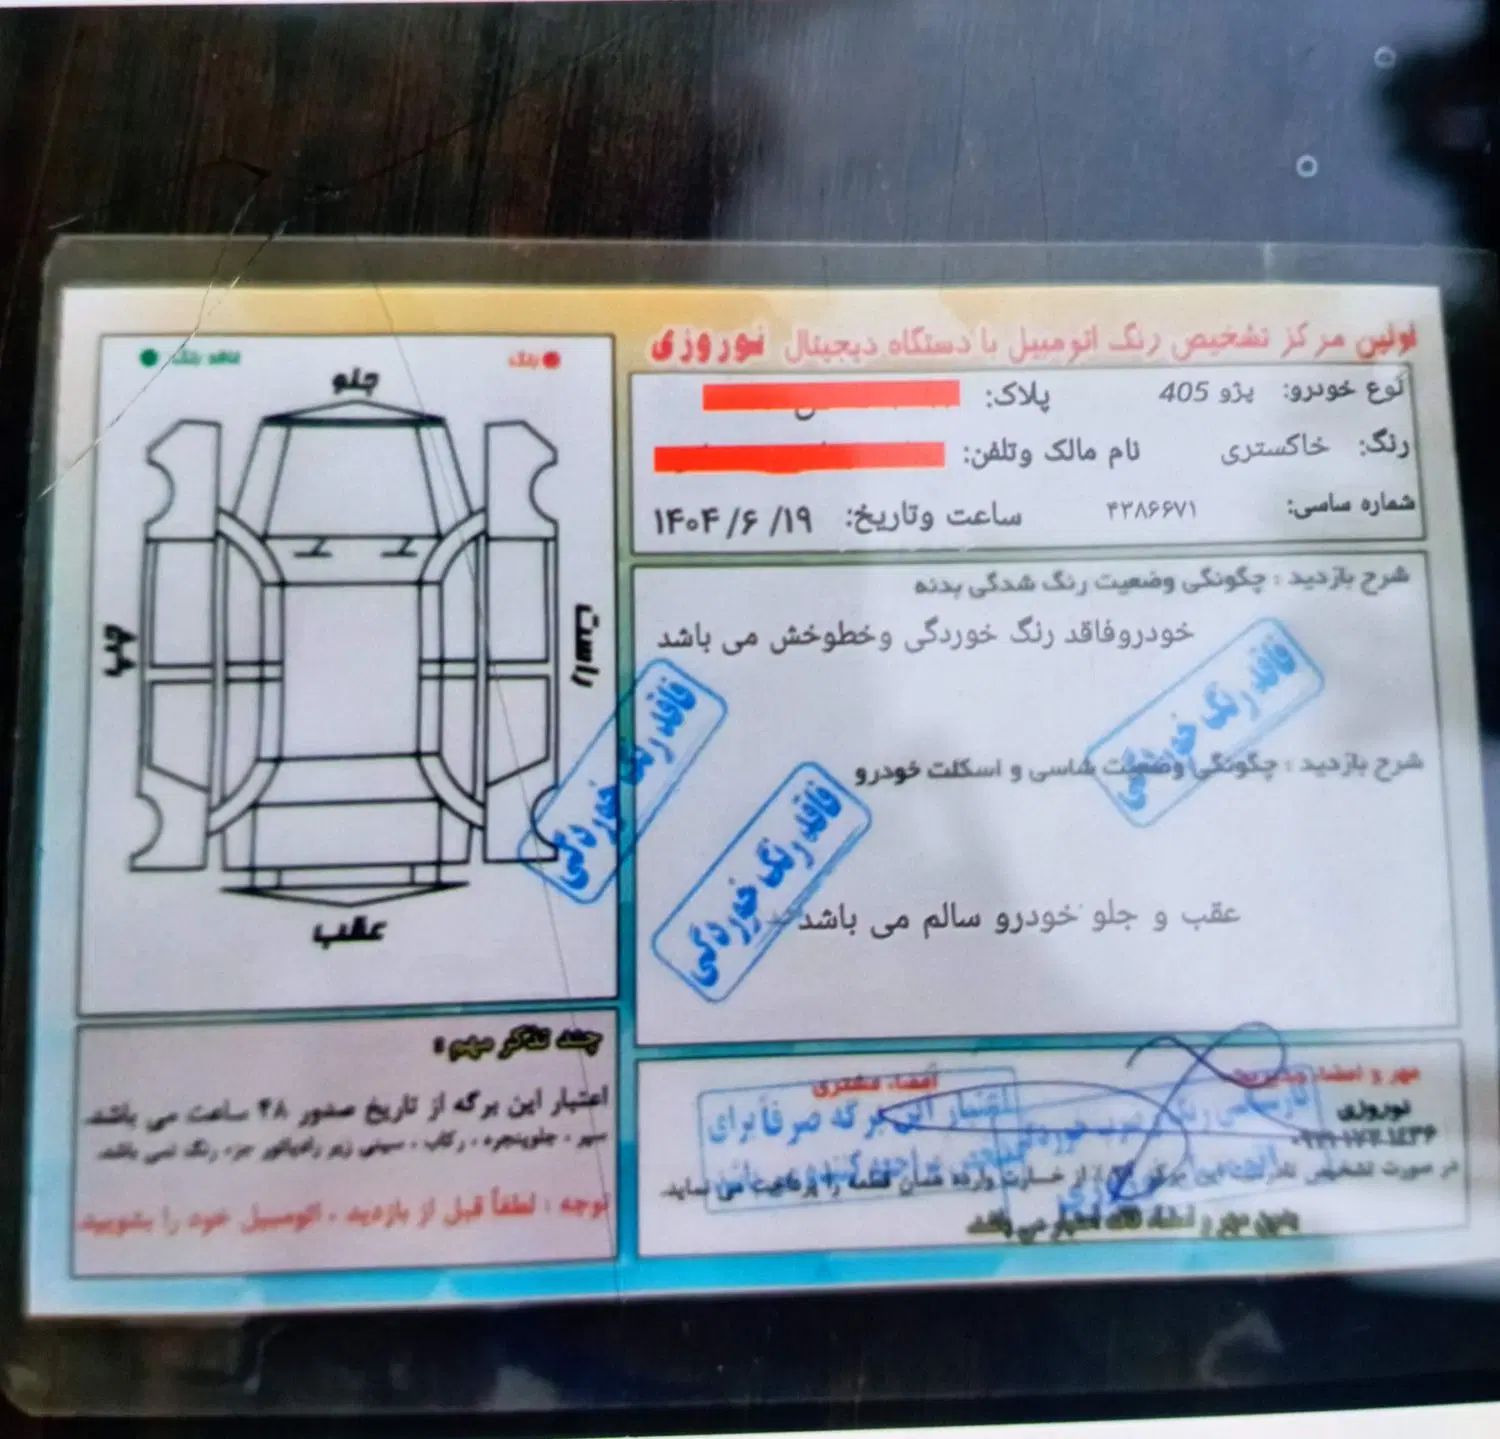 اولین مرکز تشخیص رنگ اتومبیل با دستگاه دیجیتال نوروزی
نوع خودرو: پژو 405 پلاک:
رنگ: خاکستری نام مالک وتلفن:
شماره ساسی: ۴۳۸۶۶۷۱ ساعت وتاریخ: ۱۴۰۴/۶/۱۹
شرح بازدید : چگونگی وضعیت رنگ شدگی بدنه
خودروفاقد رنگ خوردگی وخطوخش می باشد
فاقد رنگ خوردگی
شرح بازدید : چگونگی وضعیت شاسی و اسکلت خودرو
فاقد رنگ خوردگی
فاقد رنگ خوردگی
عقب و جلو خودرو سالم می باشد
رنگ
فاقد رنگ
جلو
راست
چپ
عقب
چند تذکر مهم :
اعتبار این برگه از تاریخ صدور ۴۸ ساعت می باشد.
سپر ، جلوپنجره ، رکاب ، سینی زیر رادیاتور جزء رنگ نمی باشد.
توجه : لطفاً قبل از بازدید ، اتومبیل خود را بشویید.
مهر و امضاء مدیریت
نوروزی
امضاء مشتری
اعتبار این برگه صرفاً برای
در صورت تشخیص نادرست این مرکز از خسارت وارده همان قطعه را پرداخت می نماید.
بدون مهر و امضاء فاقد اعتبار می باشد.